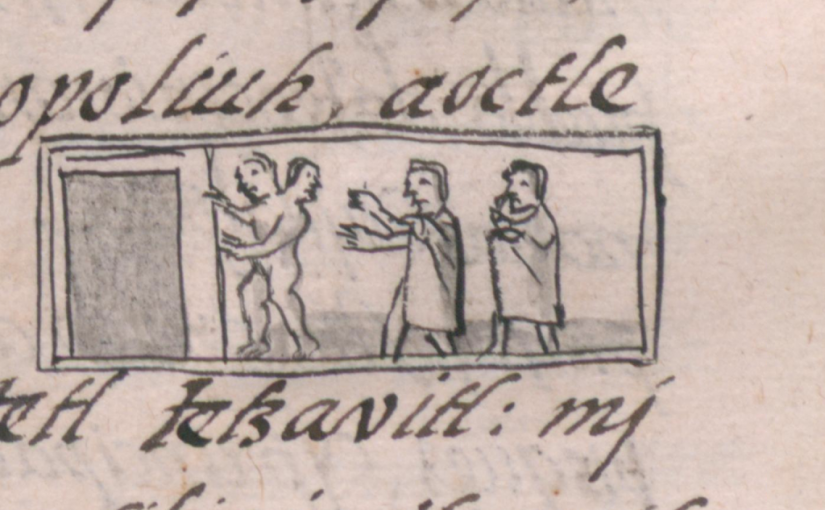 opoliuh, aoctle
tetl tetzavitl: mj